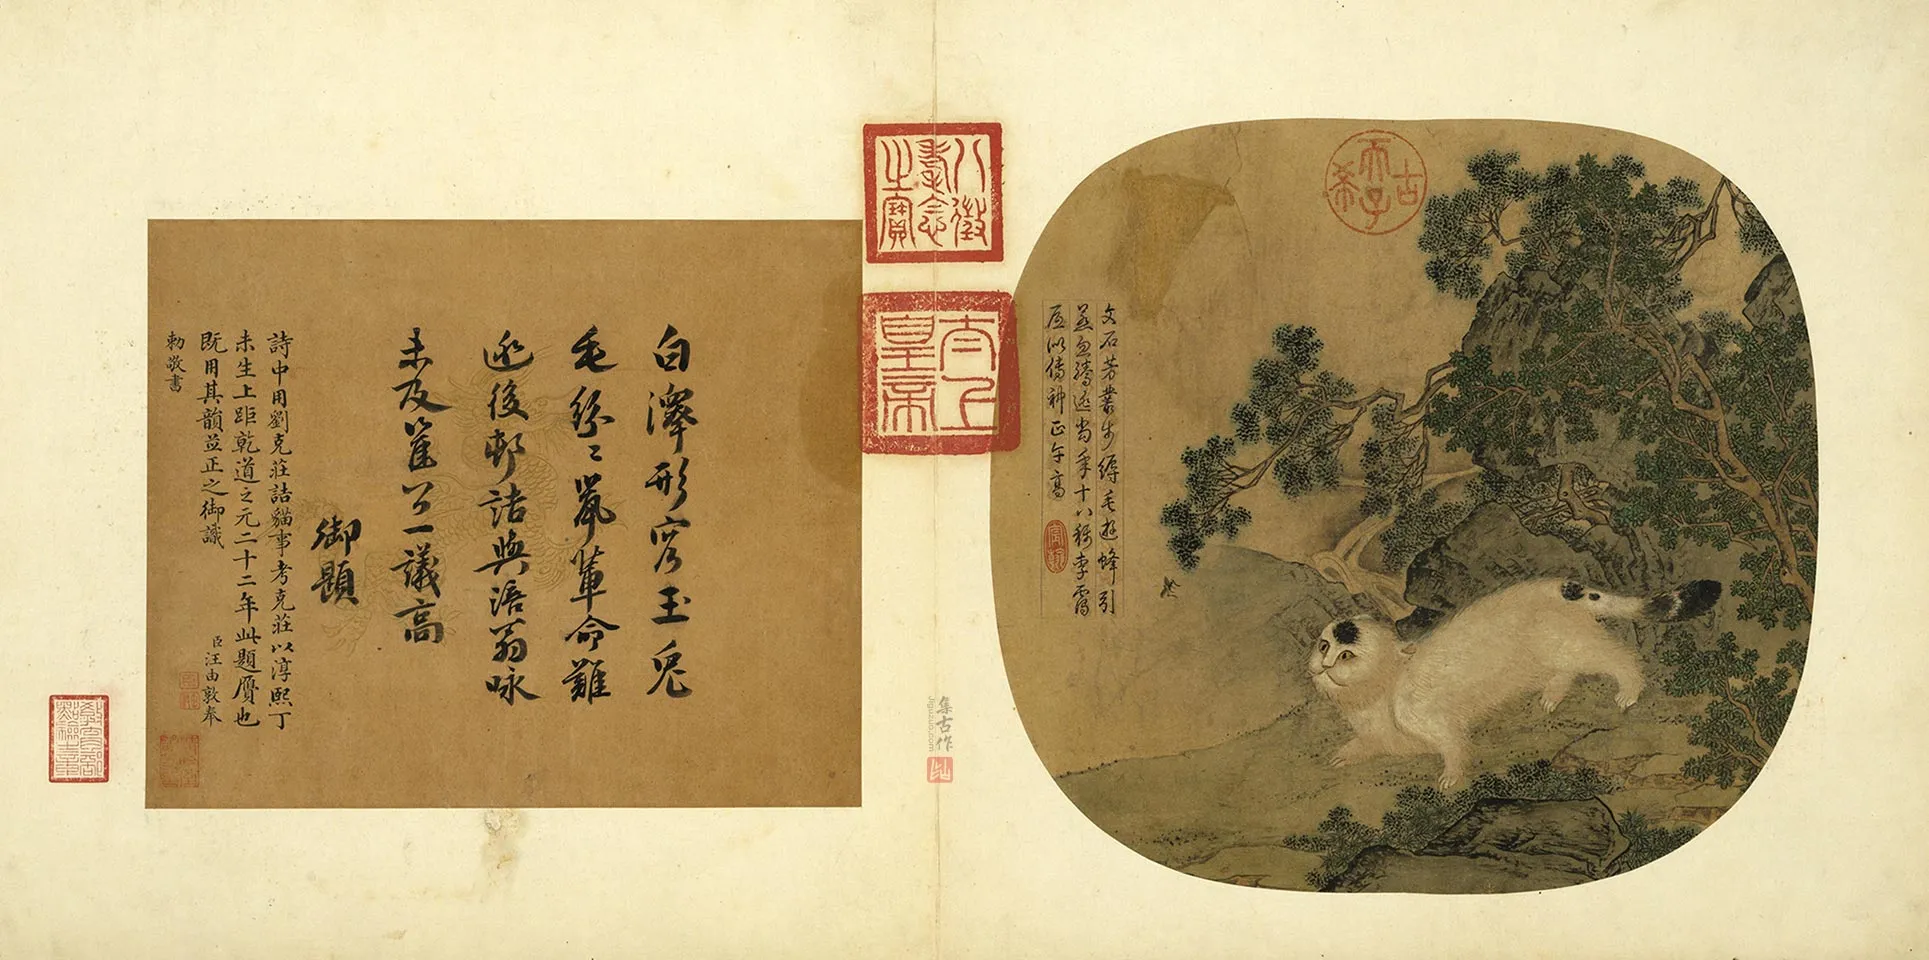 古希天子
文石芳叢步縟毛遊蜂引
忽騰逃當年十八稱李靄
之似傳神正午高
八徵耄念之寶
太上皇帝
白澤形容玉兔
毛紛〻鼠輩命難
逃後邨詰與涪翁咏
未及崔公一議高
御題
詩中用劉克莊詰貓事考克莊以淳熙丁
未生上距乾道之元二十二年此題贋也
既用其韻並正之御識
臣汪由敦奉
勅敬書
教育部點驗之章
集古作
jiguzuo.com